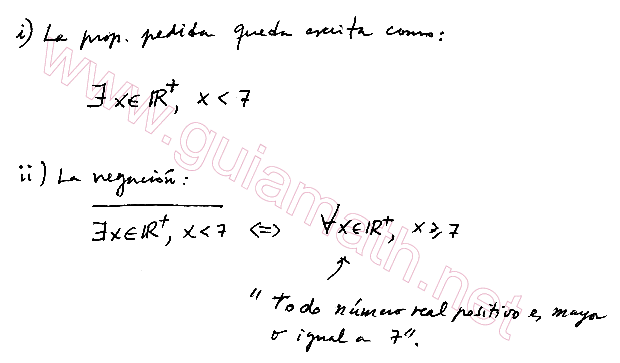 i) La prop. pedida queda escrita como:
∃ x ∈ ℝ⁺, x < 7
ii) La negación:
‾∃ x ∈ ℝ⁺, x < 7‾ <=> ∀ x ∈ ℝ⁺, x ⩾ 7
"Todo número real positivo es mayor
o igual a 7".
www.guiamath.net